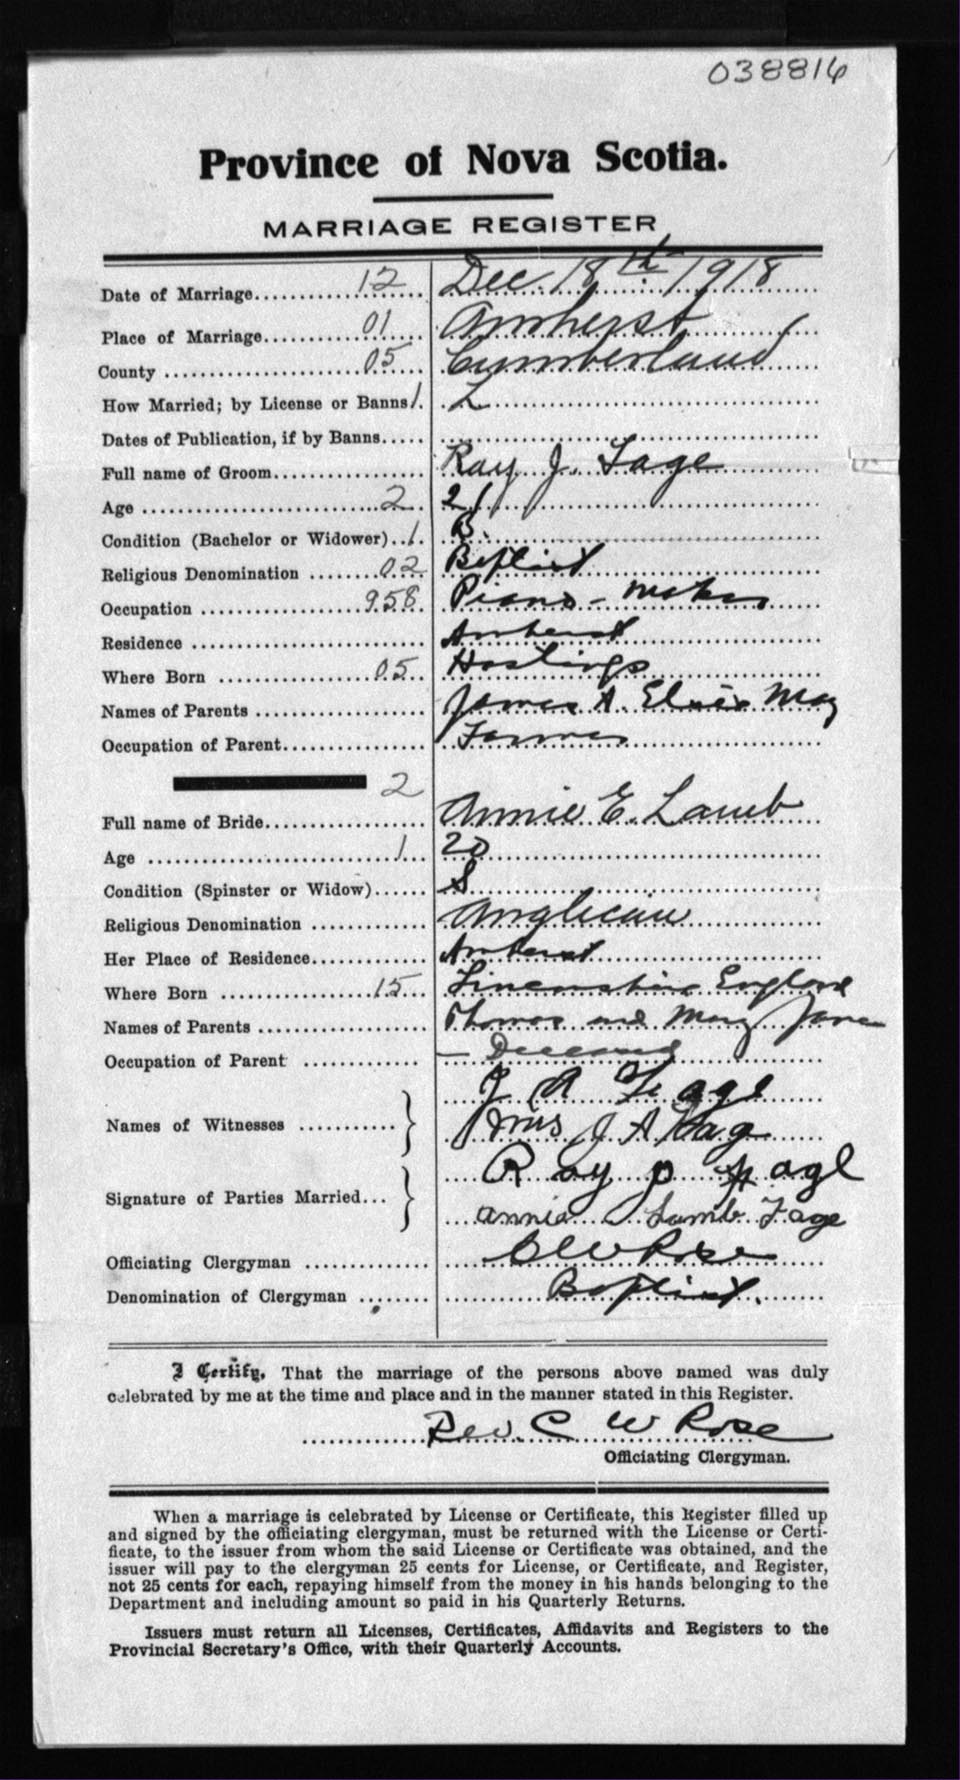 038816
Province of Nova Scotia.
MARRIAGE REGISTER
Date of Marriage 12 Dec. 18th 1918
Place of Marriage 01 Amherst
County 05 Cumberland
How Married; by License or Banns 1. L
Dates of Publication, if by Banns
Full name of Groom Ray J. Fage
Age 2 21
Condition (Bachelor or Widower) 1. B.
Religious Denomination 02 Baptist
Occupation 958 Piano-maker
Residence Amherst
Where Born 05 Hastings
Names of Parents James A. May
Occupation of Parent Farmer
2
Full name of Bride Annie E. Lamb
Age 1 20
Condition (Spinster or Widow) S
Religious Denomination Anglican
Her Place of Residence Amherst
Where Born 15 Lincolnshire England
Names of Parents Thomas and Mary Jane
Occupation of Parent — Deceased
Names of Witnesses J A Fage
Mrs J A Fage
Signature of Parties Married Ray Fage
Annie Lamb Fage
Officiating Clergyman C W Rose
Denomination of Clergyman Baptist.
I Certify, That the marriage of the persons above named was duly
celebrated by me at the time and place and in the manner stated in this Register.
Rev. C W Rose
Officiating Clergyman.
When a marriage is celebrated by License or Certificate, this Register filled up
and signed by the officiating clergyman, must be returned with the License or Certi-
ficate, to the issuer from whom the said License or Certificate was obtained, and the
issuer will pay to the clergyman 25 cents for License, or Certificate, and Register,
not 25 cents for each, repaying himself from the money in his hands belonging to the
Department and including amount so paid in his Quarterly Returns.
Issuers must return all Licenses, Certificates, Affidavits and Registers to the
Provincial Secretary's Office, with their Quarterly Accounts.